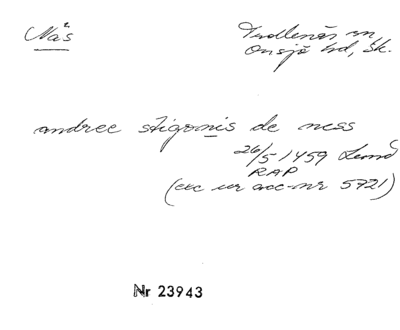 Näs
Trollenäs sn,
Onsjö hd, Sk.
andree stigonis de ness
26/5 1459 Lund
RAP
(exc ur acc-nr 5721)
Nr 23943